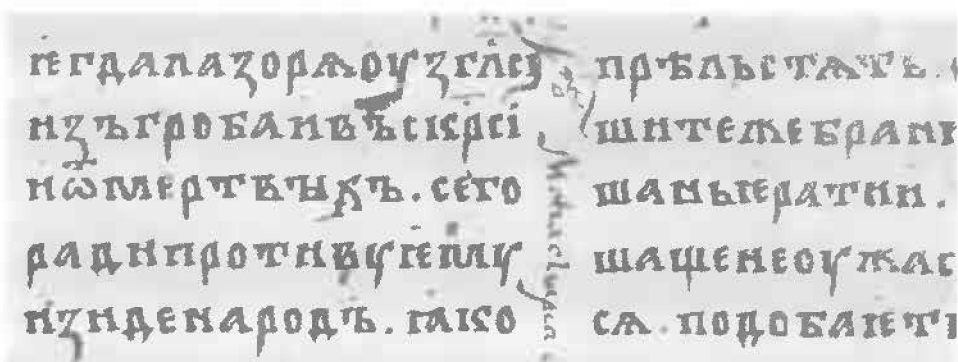 ѥгдалазорѧоузглсі
изъгробаивъскрсі
иѿмертвыхъ.сего
радипротивуѥму
изиденародъ.ꙗко
прѣльстѧтъ.
шитежебран
шаньѥратии.
шащенеоужас
сѧ.подобаѥт